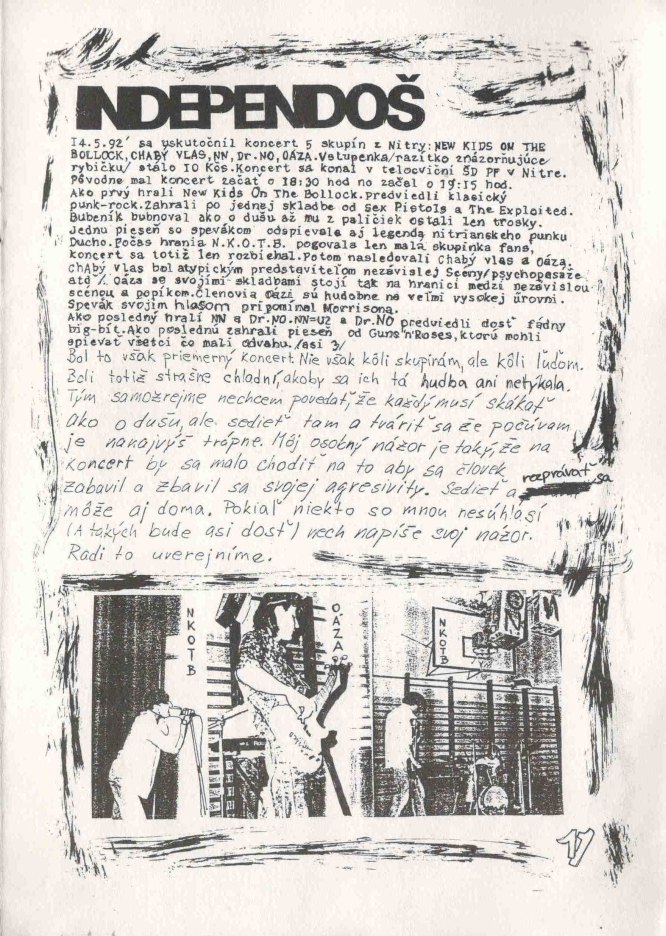 INDEPENDOŠ
14.5.92´ sa uskutočnil koncert 5 skupín z Nitry:NEW KIDS ON THE
BOLLOCK,CHABÝ VLAS,NN,Dr.NO,OÁZA.Vstupenka/razítko znázorňujúce
rybičku/ stálo 10 Kčs.Koncert sa konal v telocvični ŠD PF v Nitre.
Pôvodne mal koncert začať o 18:30 hod no začel o 19:15 hod.
Ako prvý hrali New Kids On The Bollock.Predviedli klasický
punk-rock.Zahrali po jednej skladbe od Sex Pistols a The Exploited.
Bubeník bubnoval ako o dušu až mu z paličiek ostali len trosky.
Jednu pieseň so spevákom odspievala aj legenda nitrianskeho punku
Ducho.Počas hrania N.K.O.T.B. pogovala len malá skupinka fans,
koncert sa totiž len rozbiehal.Potom nasledovali Chabý vlas a Oáza.
Chabý Vlas bol atypickým predstaviteľom nezávislej Scény/psychopasáže
atď /. Oáza se svojimi skladbami stojí tak na hranici medzi nezávislou
scénou a popíkom.Členovia Oázi sú hudobne na veľmi vysokej úrovni.
Spevák svojim hlasom pripomínal Morrisona.
Ako posledný hrali NN a Dr.NO.NN=U2 a Dr.NO predviedli dosť fádny
big-bít.Ako poslednú zahrali pieseň od Guns'n'Roses,ktorú mohli
spievať všetci čo mali odvahu./asi 3/
Bol to však priemerný koncert. Nie však kôli skupinám, ale kôli ľuďom.
Boli totiž strašne chladní, akoby sa ich tá hudba ani netýkala.
Tým samozrejme nechcem povedať, že každý musí skákať
ako o dušu, ale sedieť tam a tváriť sa že počúvam
je nanajvýš trápne. Môj osobný názor je taký, že na
koncert by sa malo chodiť na to aby sa človek
zabavil a zbavil sa svojej agresivity. Sedieť a rozprávať sa
môže aj doma. Pokiaľ niekto so mnou nesúhlasí
(A takých bude asi dosť) nech napíše svoj názor.
Radi to uverejníme.
NKOTB
OÁZA
NKOTB